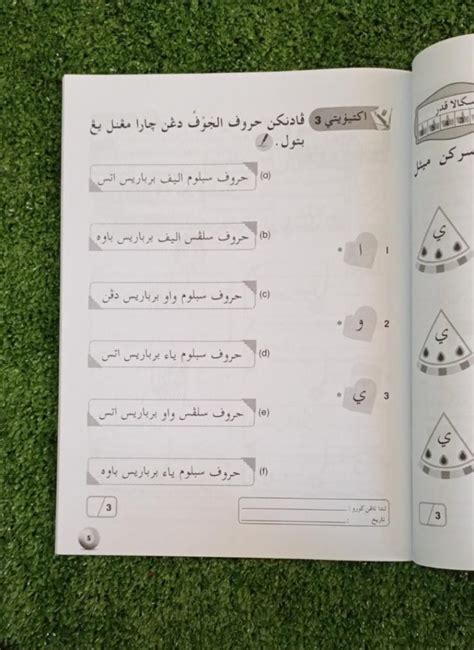 اكتيۏيتي 3 ڤادنكن حروف الجَوْفُ دڠن چارا مڠنل يڠ
بتول.
(a) حروف سبلوم اليف برباريس اتس
(b) حروف سلڤس اليف برباريس باوه
1 ا
(c) حروف سبلوم واو برباريس دڤن
2 و
(d) حروف سبلوم ياء برباريس اتس
3 ي
(e) حروف سلڤس واو برباريس اتس
(f) حروف سبلوم ياء برباريس باوه
تندا تاڠن ݢورو :
تاريخ :
/3
5
سكالا قدر
ي
ي
ي
/3